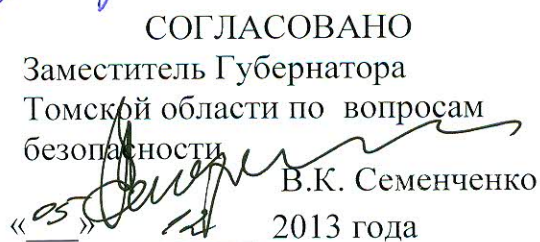 СОГЛАСОВАНО
Заместитель Губернатора
Томской области по вопросам
безопасности
В.К. Семенченко
«05» 12 2013 года